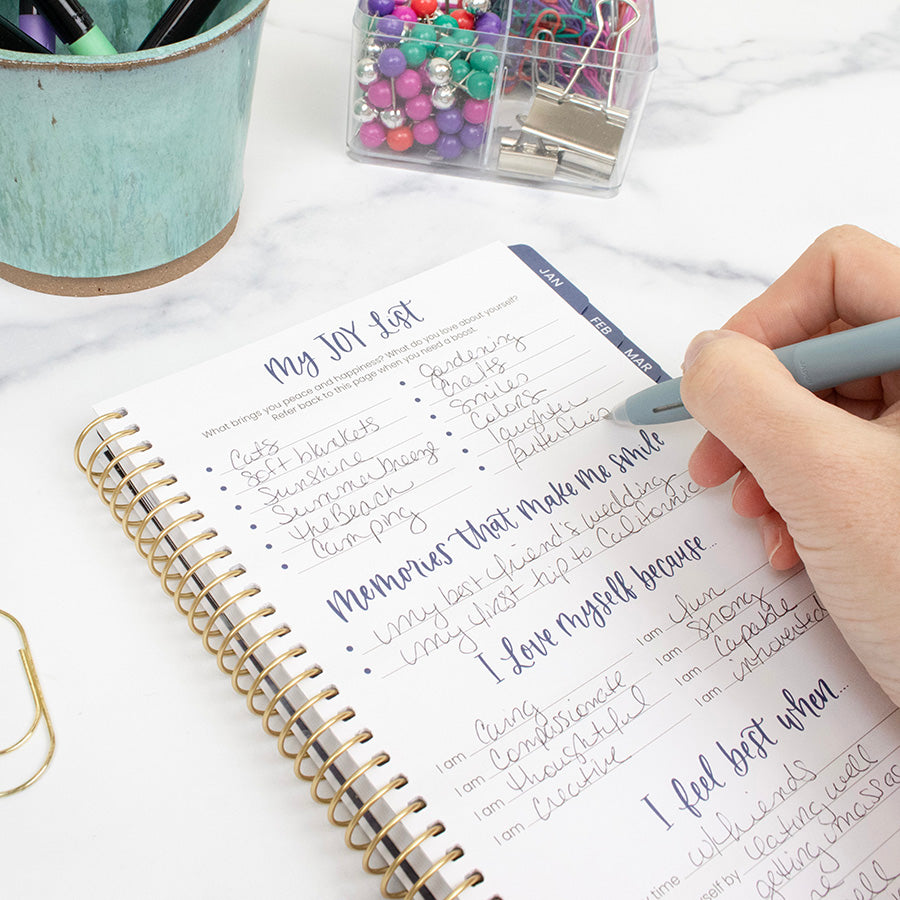 JAN
FEB
MAR
My JOY List
What brings you peace and happiness? What do you love about yourself?
Refer back to this page when you need a boost.
Cats
Soft blankets
Sunshine
Summer breeze
the Beach
Camping
Gardening
Crafts
Smiles
Colors
laughter
Butterflies
Memories that make me smile
my best friend's wedding
my first trip to California
I love myself because...
I am caring
I am compassionate
I am thoughtful
I am creative
I am fun
I am strong
I am capable
I am introverted
I feel best when...
time w/friends
self by eating well
getting massages